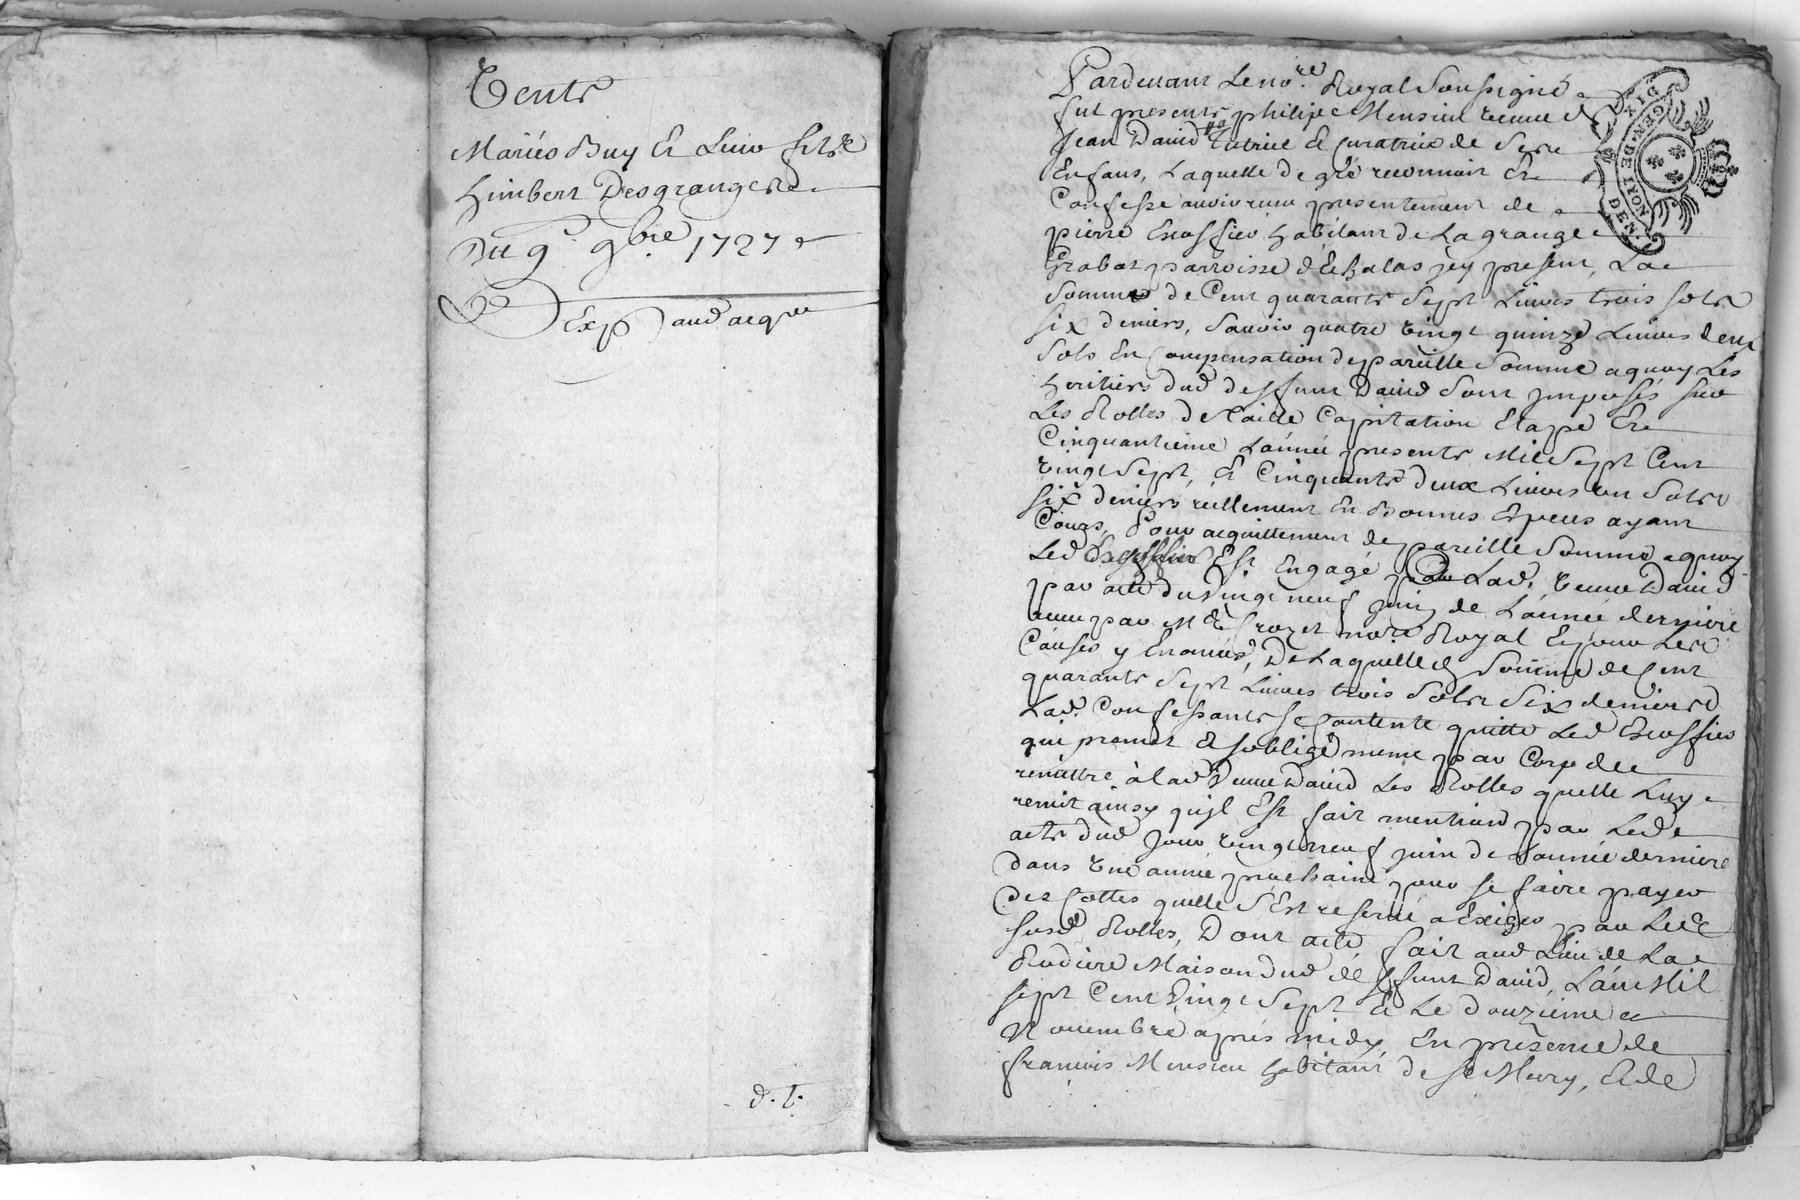 Vente
Mariés Buy Et
himbert Desgranges
Du 9e 9bre 1727
Exp. aud acqr
d. l.
Pardevant Le nore Royal Soussigné
fut presente philipe Monsieu veuve de
Jean David tutrice Et Curatrice de Ses
Enfans, Laquelle de gré reconnoit Et
Confesse avoir receu presentement de
pierre Escoffier habitant de La grange
parroisse d'Echalas jcy present, La
Somme de Cent quarante Sept Livres trois Sols
Six deniers, Scavoir quatre vingt quinze Livres deux
Sols En Compensation de pareille Somme a quoy Les
heritiers dud deffunt David Sont jmposés sur
Les Rolles de Taille Capitation Etape Et
Cinquantieme Lannée presente Mil Sept Cent
vingt Sept, Et Cinquante deux Livres un Sols
Six deniers réellement En Bonnes Especes ayant
Cours, Pour acquittement de pareille Somme a quoy
Led Escoffier Est Engagé par Lad. veuve David
par acte du vingt neuf juin de Lannée derniere
receu par Me frozet nore Royal Et pour Les
Causes y Enoncées, De Laquelle Somme de Cent
quarante Sept Livres trois Sols Six deniers
Lad. Confessante se Contente quitte Led Escoffier
qui promet Et soblige meme par Corps de
remettre à lad Veuve David Les Rolles quelle Luy
remit ainsy qujl Est fait mention par Led
acte dud jour vingt neuf juin de Lannée derniere
dans une année prochaine pour se faire payer
des Cottes quelle S'Est reservé a Exiger par Lesd
susd Rolles, Dont acte fait aud Lieu de La
Rodiere Maison dud deffunt David, Lan Mil
sept Cent Vingt Sept Et Le Douzieme
Novembre après midy En presence de
francois Monsieu habitant de St Mury, Et de
DIX DEN.
GEN. DE LYON